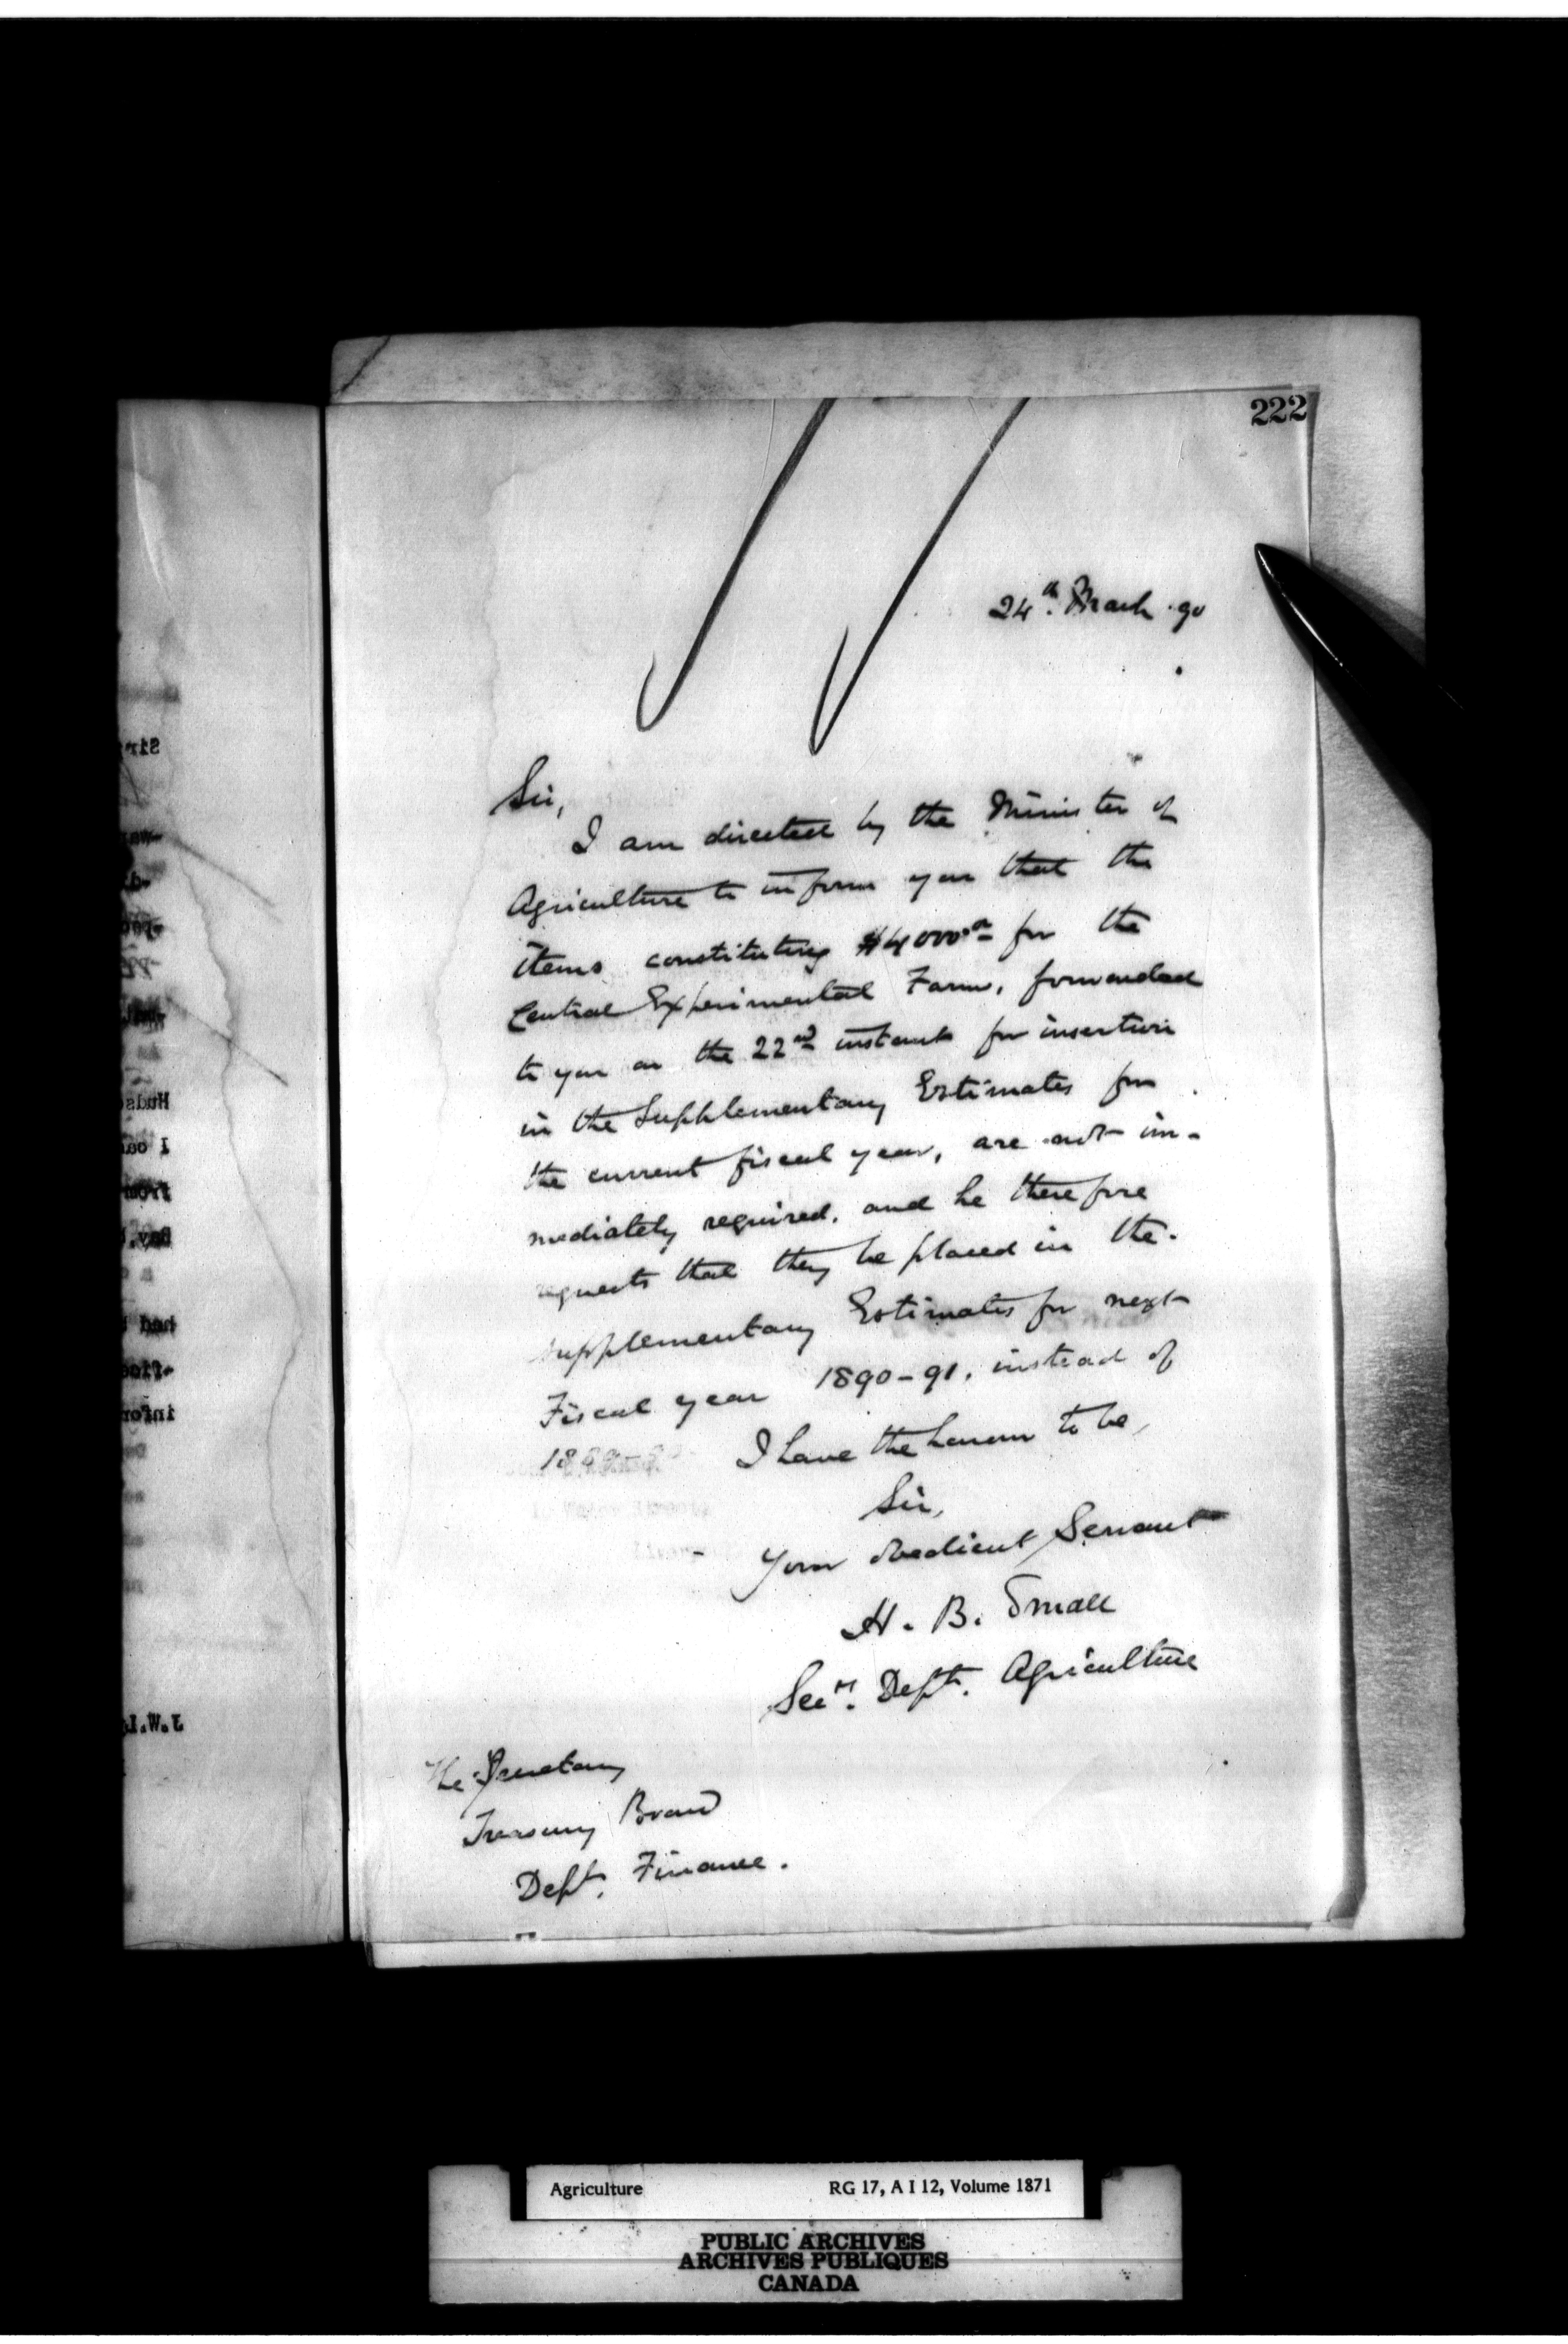 222
24th March 90
Sir,
I am directed by the Minister of
Agriculture to inform you that the
items constituting $4000.00 for the
Central Experimental Farm, forwarded
to you on the 22nd instant for insertion
in the Supplementary Estimates for
the current fiscal year, are not im-
mediately required, and he therefore
requests that they be placed in the
Supplementary Estimates for next
Fiscal year 1890-91, instead of
1889-90
I have the honour to be,
Sir,
Your obedient Servant
H. B. Small
Secry. Dept. Agriculture
The Secretary
Treasury Board
Dept. Finance.
Agriculture RG 17, A I 12, Volume 1871
PUBLIC ARCHIVES
ARCHIVES PUBLIQUES
CANADA